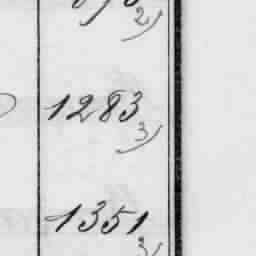 2)
1283
3)
1351
3)